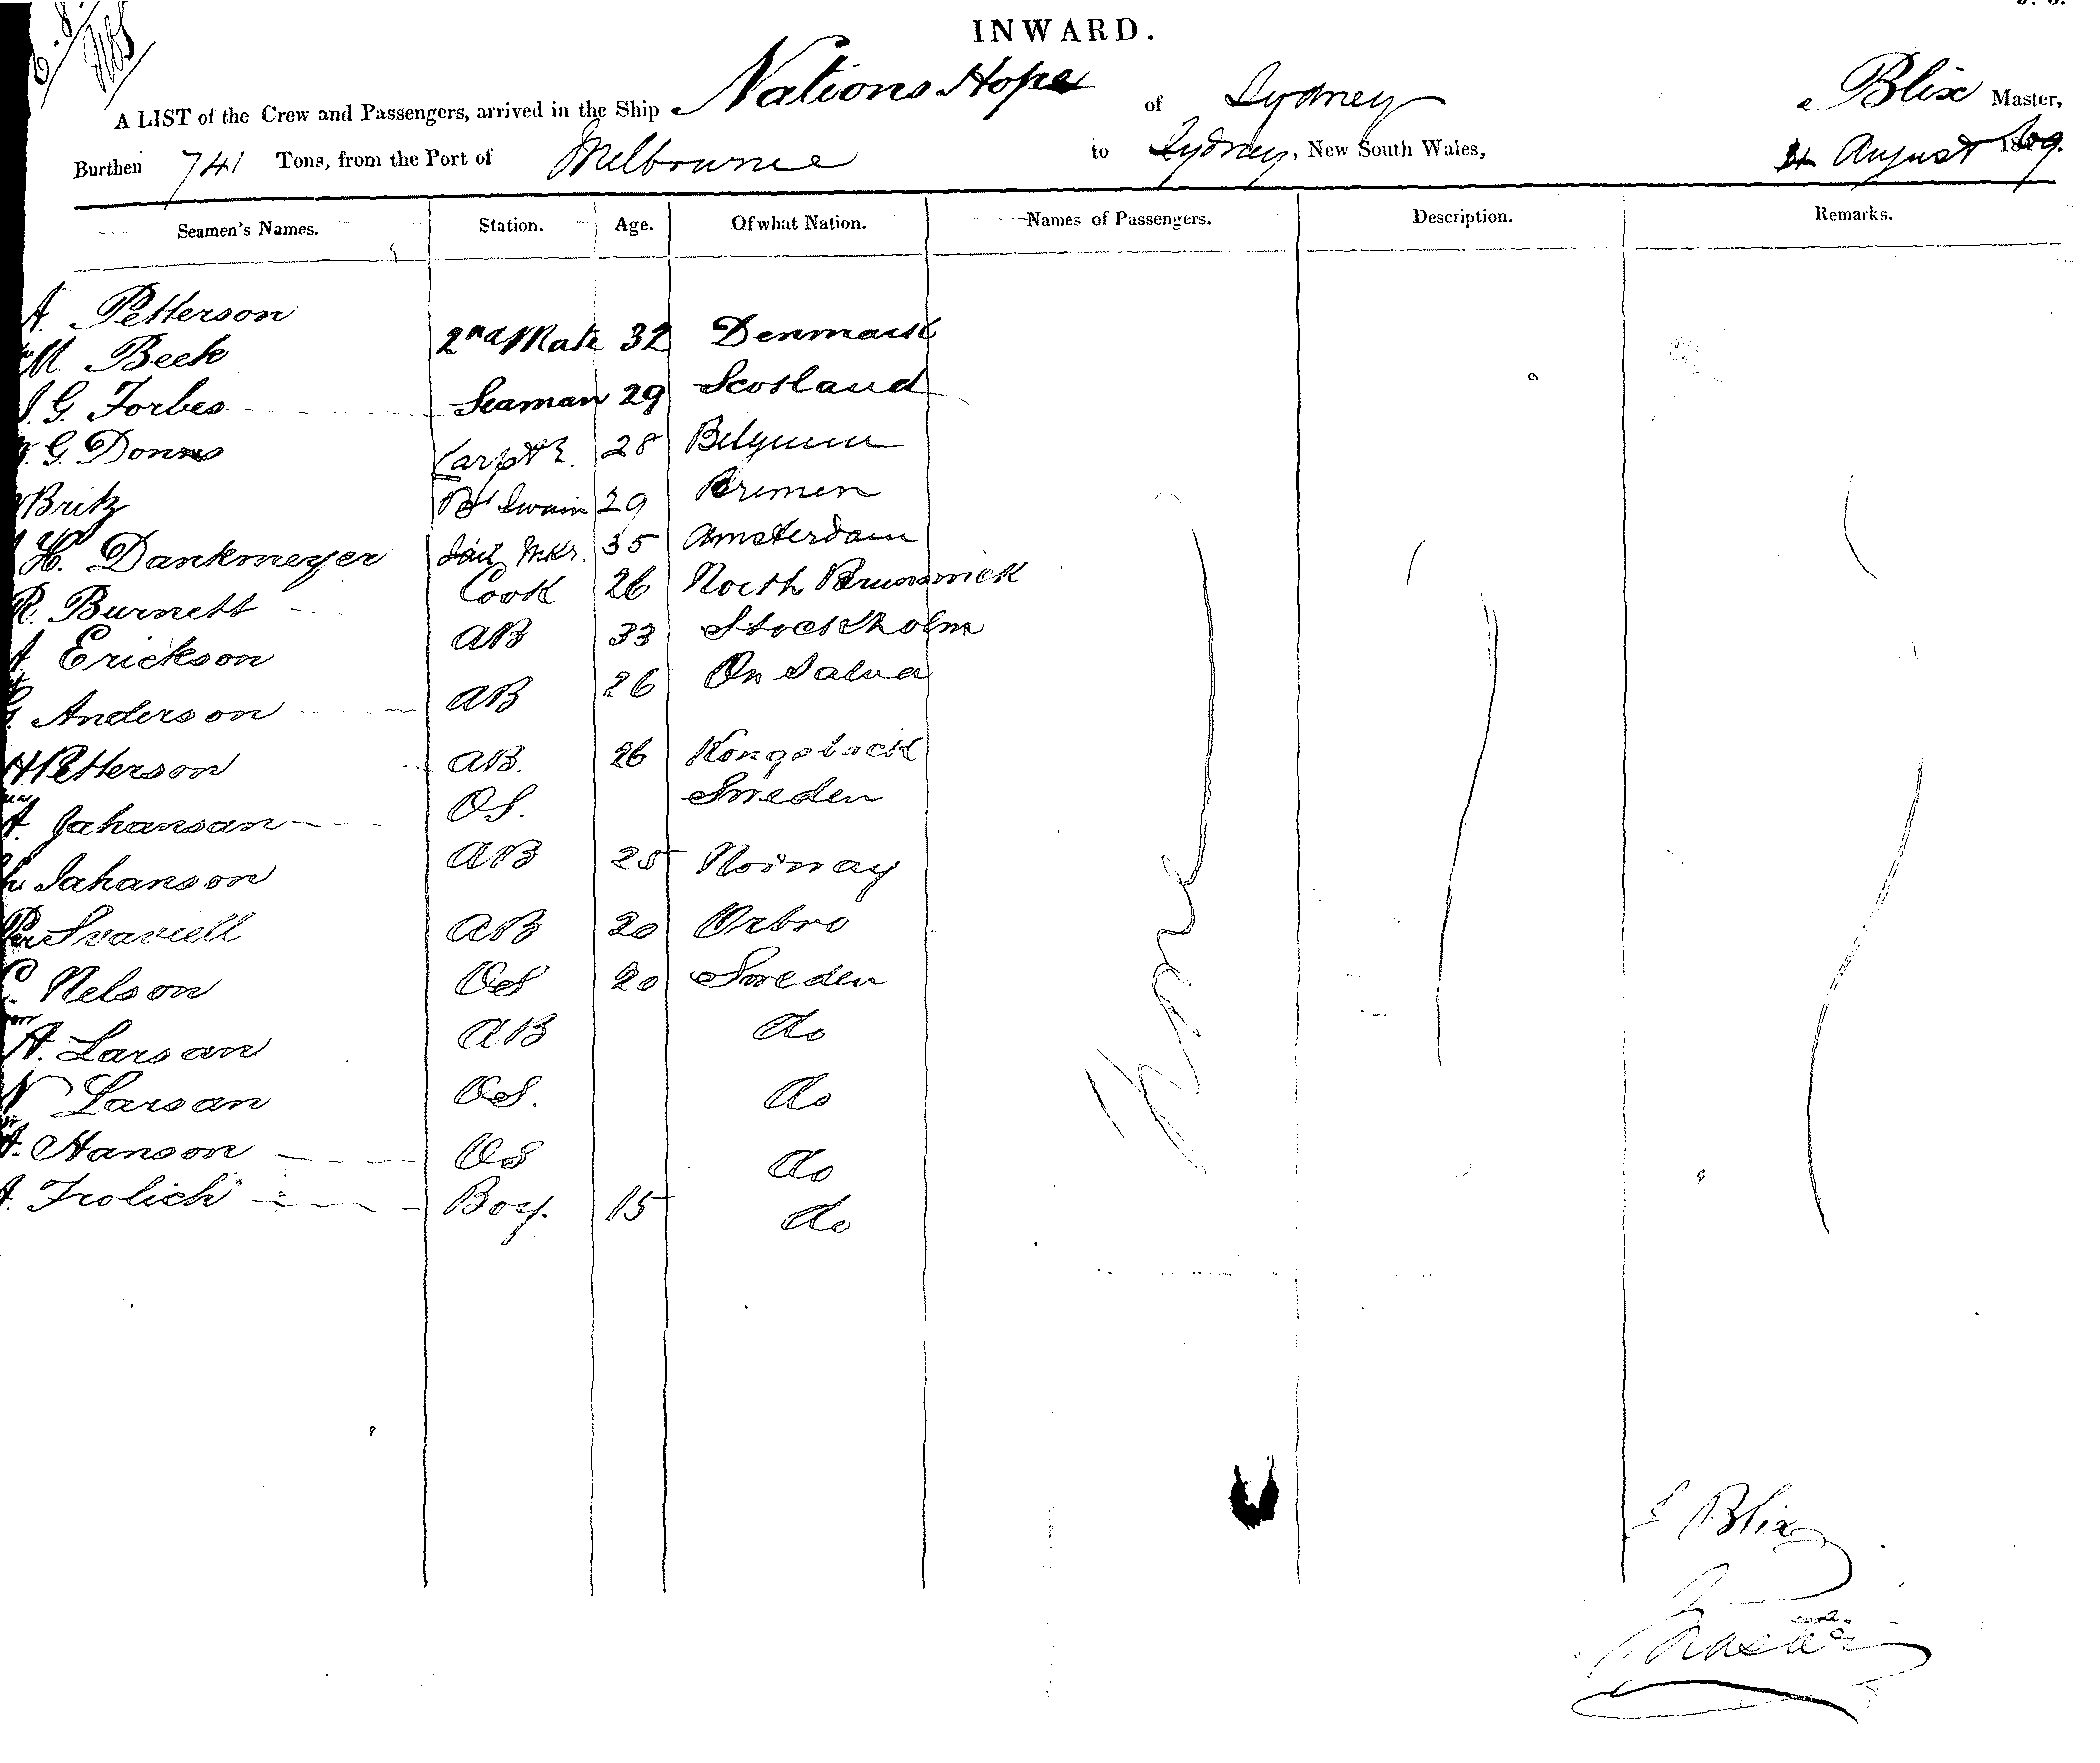 INWARD.
A LIST of the Crew and Passengers, arrived in the Ship Nations Hope of Sydney Blix Master,
Burthen 741 Tons, from the Port of Melbourne to Sydney, New South Wales, August 1869.
Seamen's Names. Station. Age. Of what Nation. Names of Passengers. Description. Remarks.
A. Petterson 2nd Mate 32 Denmark
M. Beek Seaman 29 Scotland
G. Forbes Carptr. 28 Belgium
G. Donns Bt Swain 29 Bremen
Britz Sail Mkr. 35 Amsterdam
H. Dankmeyer Cook 26 North Brunswick
R. Burnett AB 33 Stockholm
A. Erickson AB 26 On Salva
Anderson AB. 26 Kongsback
Petterson OS. Sweden
A. Jahansan AB 25 Norway
Jahanson AB 20 Orbro
Per OS 20 Sweden
C. Nelson AB do
A. Larsan OS. do
N Larsan OS do
A. Hanson Boy. 15 do
A. Frolich
Blix